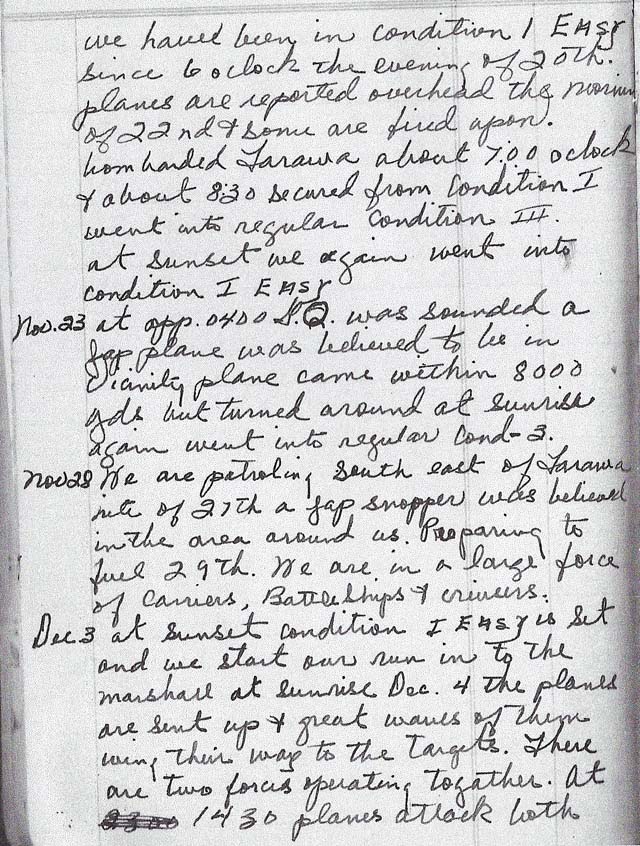 we haved been in condition 1 Easy
since 6 oclock the evening of 20th.
planes are reported overhead the mornin
of 22nd & some are fired upon.
bombarded Tarawa about 7:00 oclock
& about 8:30 secured from Condition I
went into regular Condition III.
at sunset we again went into
condition I Easy
Nov. 23 at app. 0400 G.Q. was sounded a
Jap plane was believed to be in
vicinity plane came within 8000
yds but turned around at sunrise
again went into regular Cond-3.
Nov 28 We are patroling South east of Tarawa
nite of 27th a Jap snopper was believed
in the area around us. Preparing to
fuel 29th. We are in a large force
of Carriers, Battleships & cruisers.
Dec. 3 at sunset condition I Easy is set
and we start our run in to the
marshall at sunrise Dec. 4 the planes
are sent up & great waves of them
wing their way to the targets. There
are two forces operating together. At
1430 planes attack both